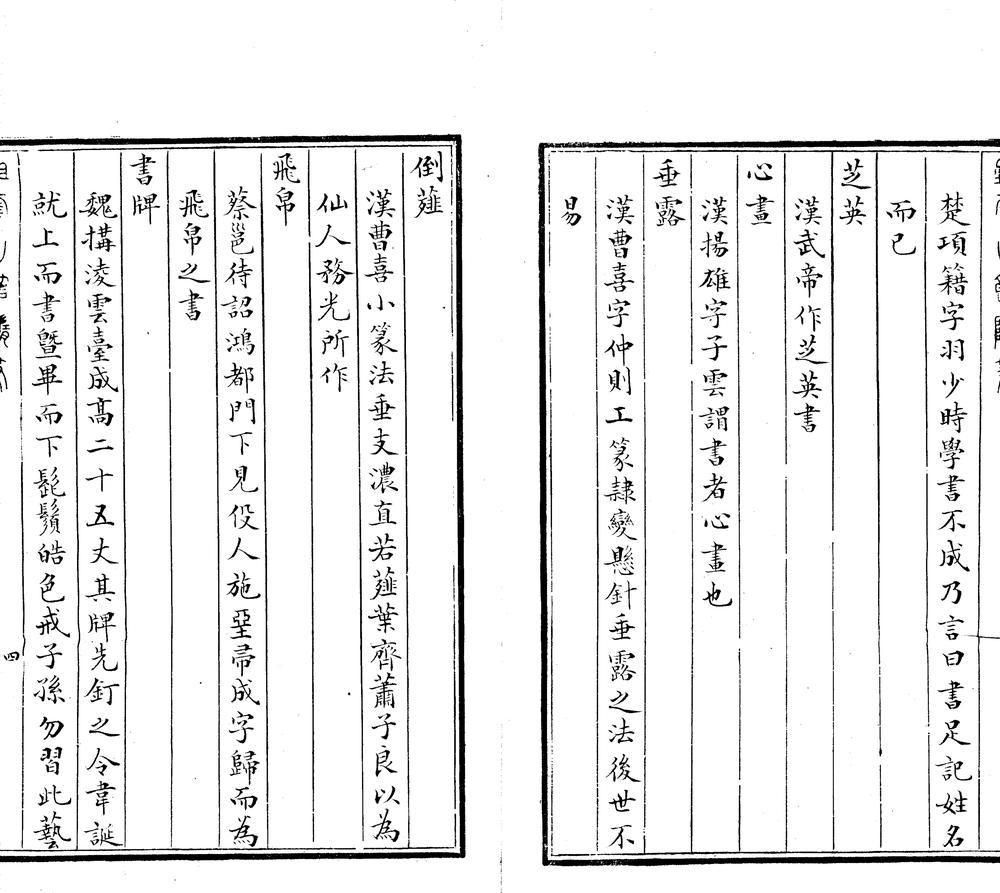 楚項籍字羽少時學書不成乃言曰書足記姓名
而已
芝英
漢武帝作芝英書
心畫
漢揚雄字子雲謂書者心畫也
垂露
漢曹喜字仲則工篆隸變懸針垂露之法後世不
易
倒薤
漢曹喜小篆法垂支濃直若薤葉齊蕭子良以為
仙人務光所作
飛帛
蔡邕待詔鴻都門下見役人施堊帚成字歸而為
飛帛之書
書牌
魏搆淩雲臺成高二十五丈其牌先釘之令韋誕
就上而書暨畢而下髭鬚皓色戒子孫勿習此藝
四